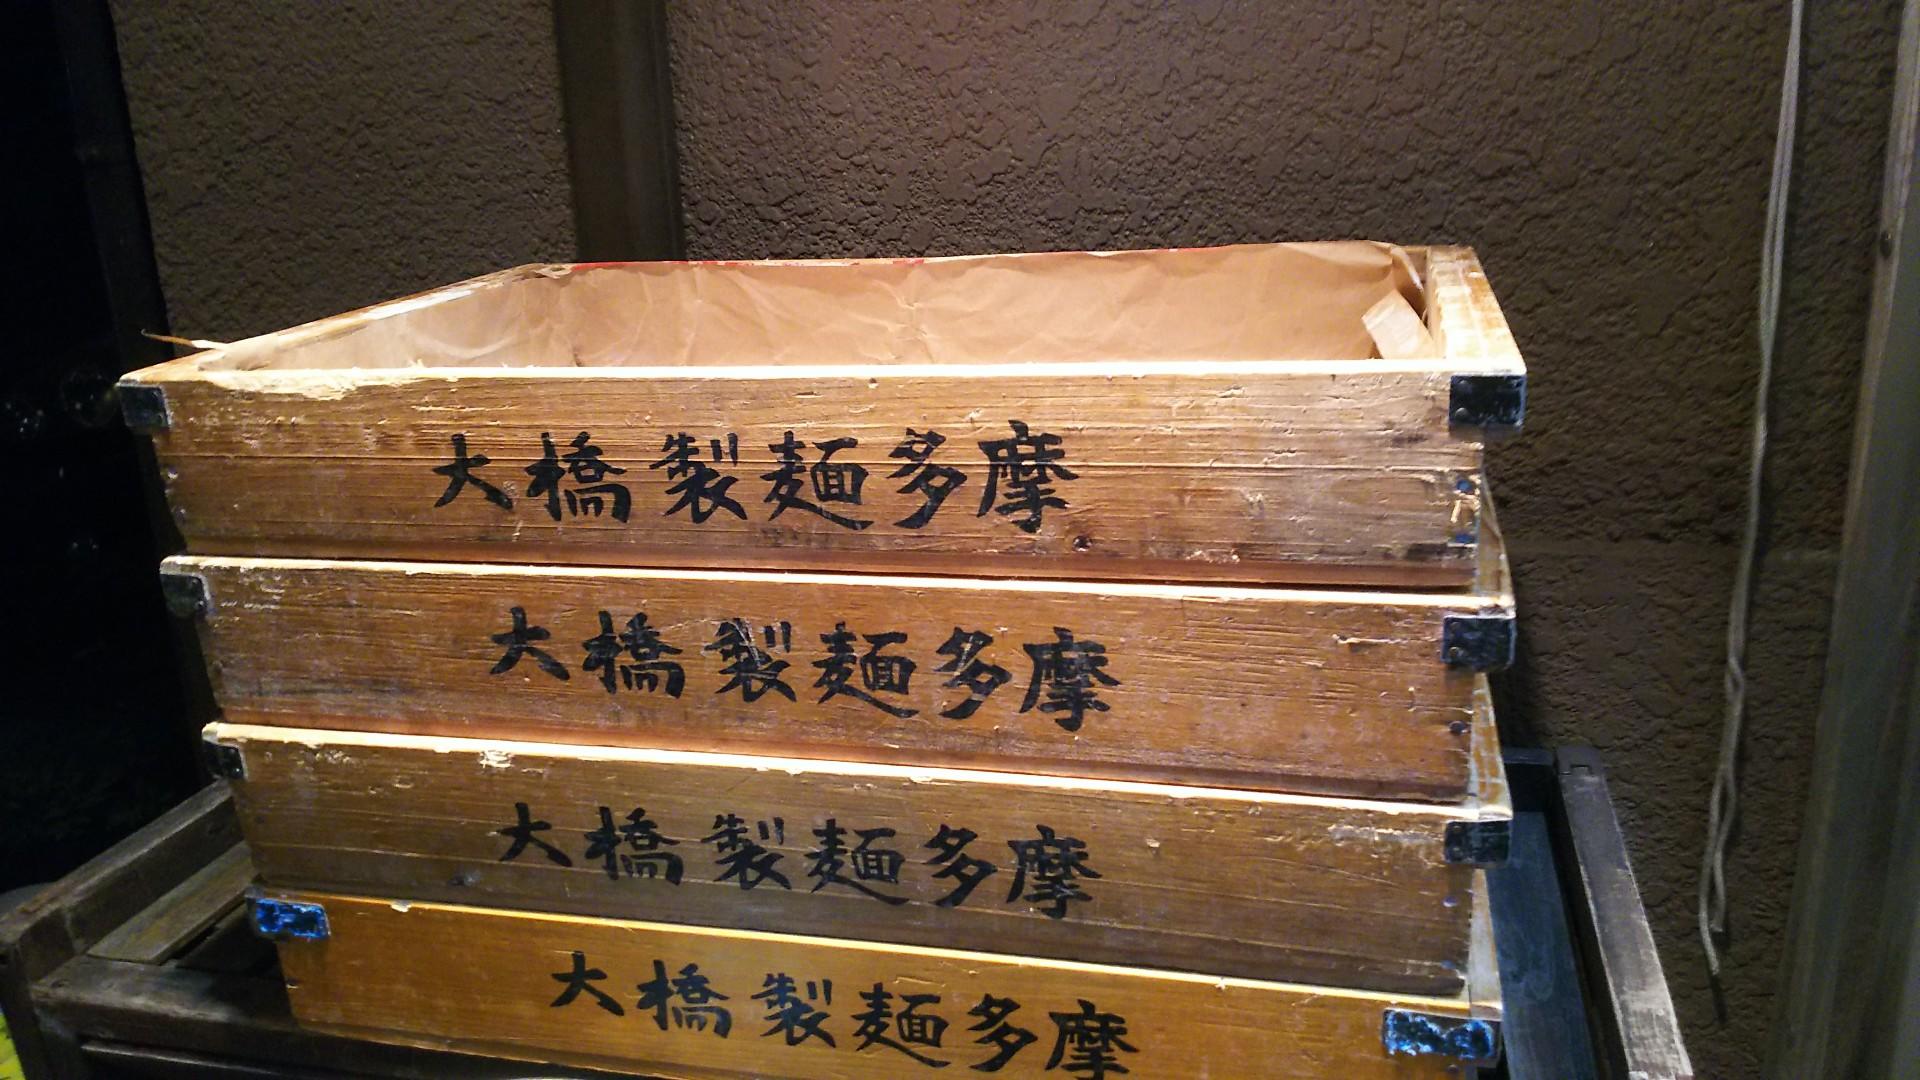 大橋製麺多摩
大橋製麺多摩
大橋製麺多摩
大橋製麺多摩